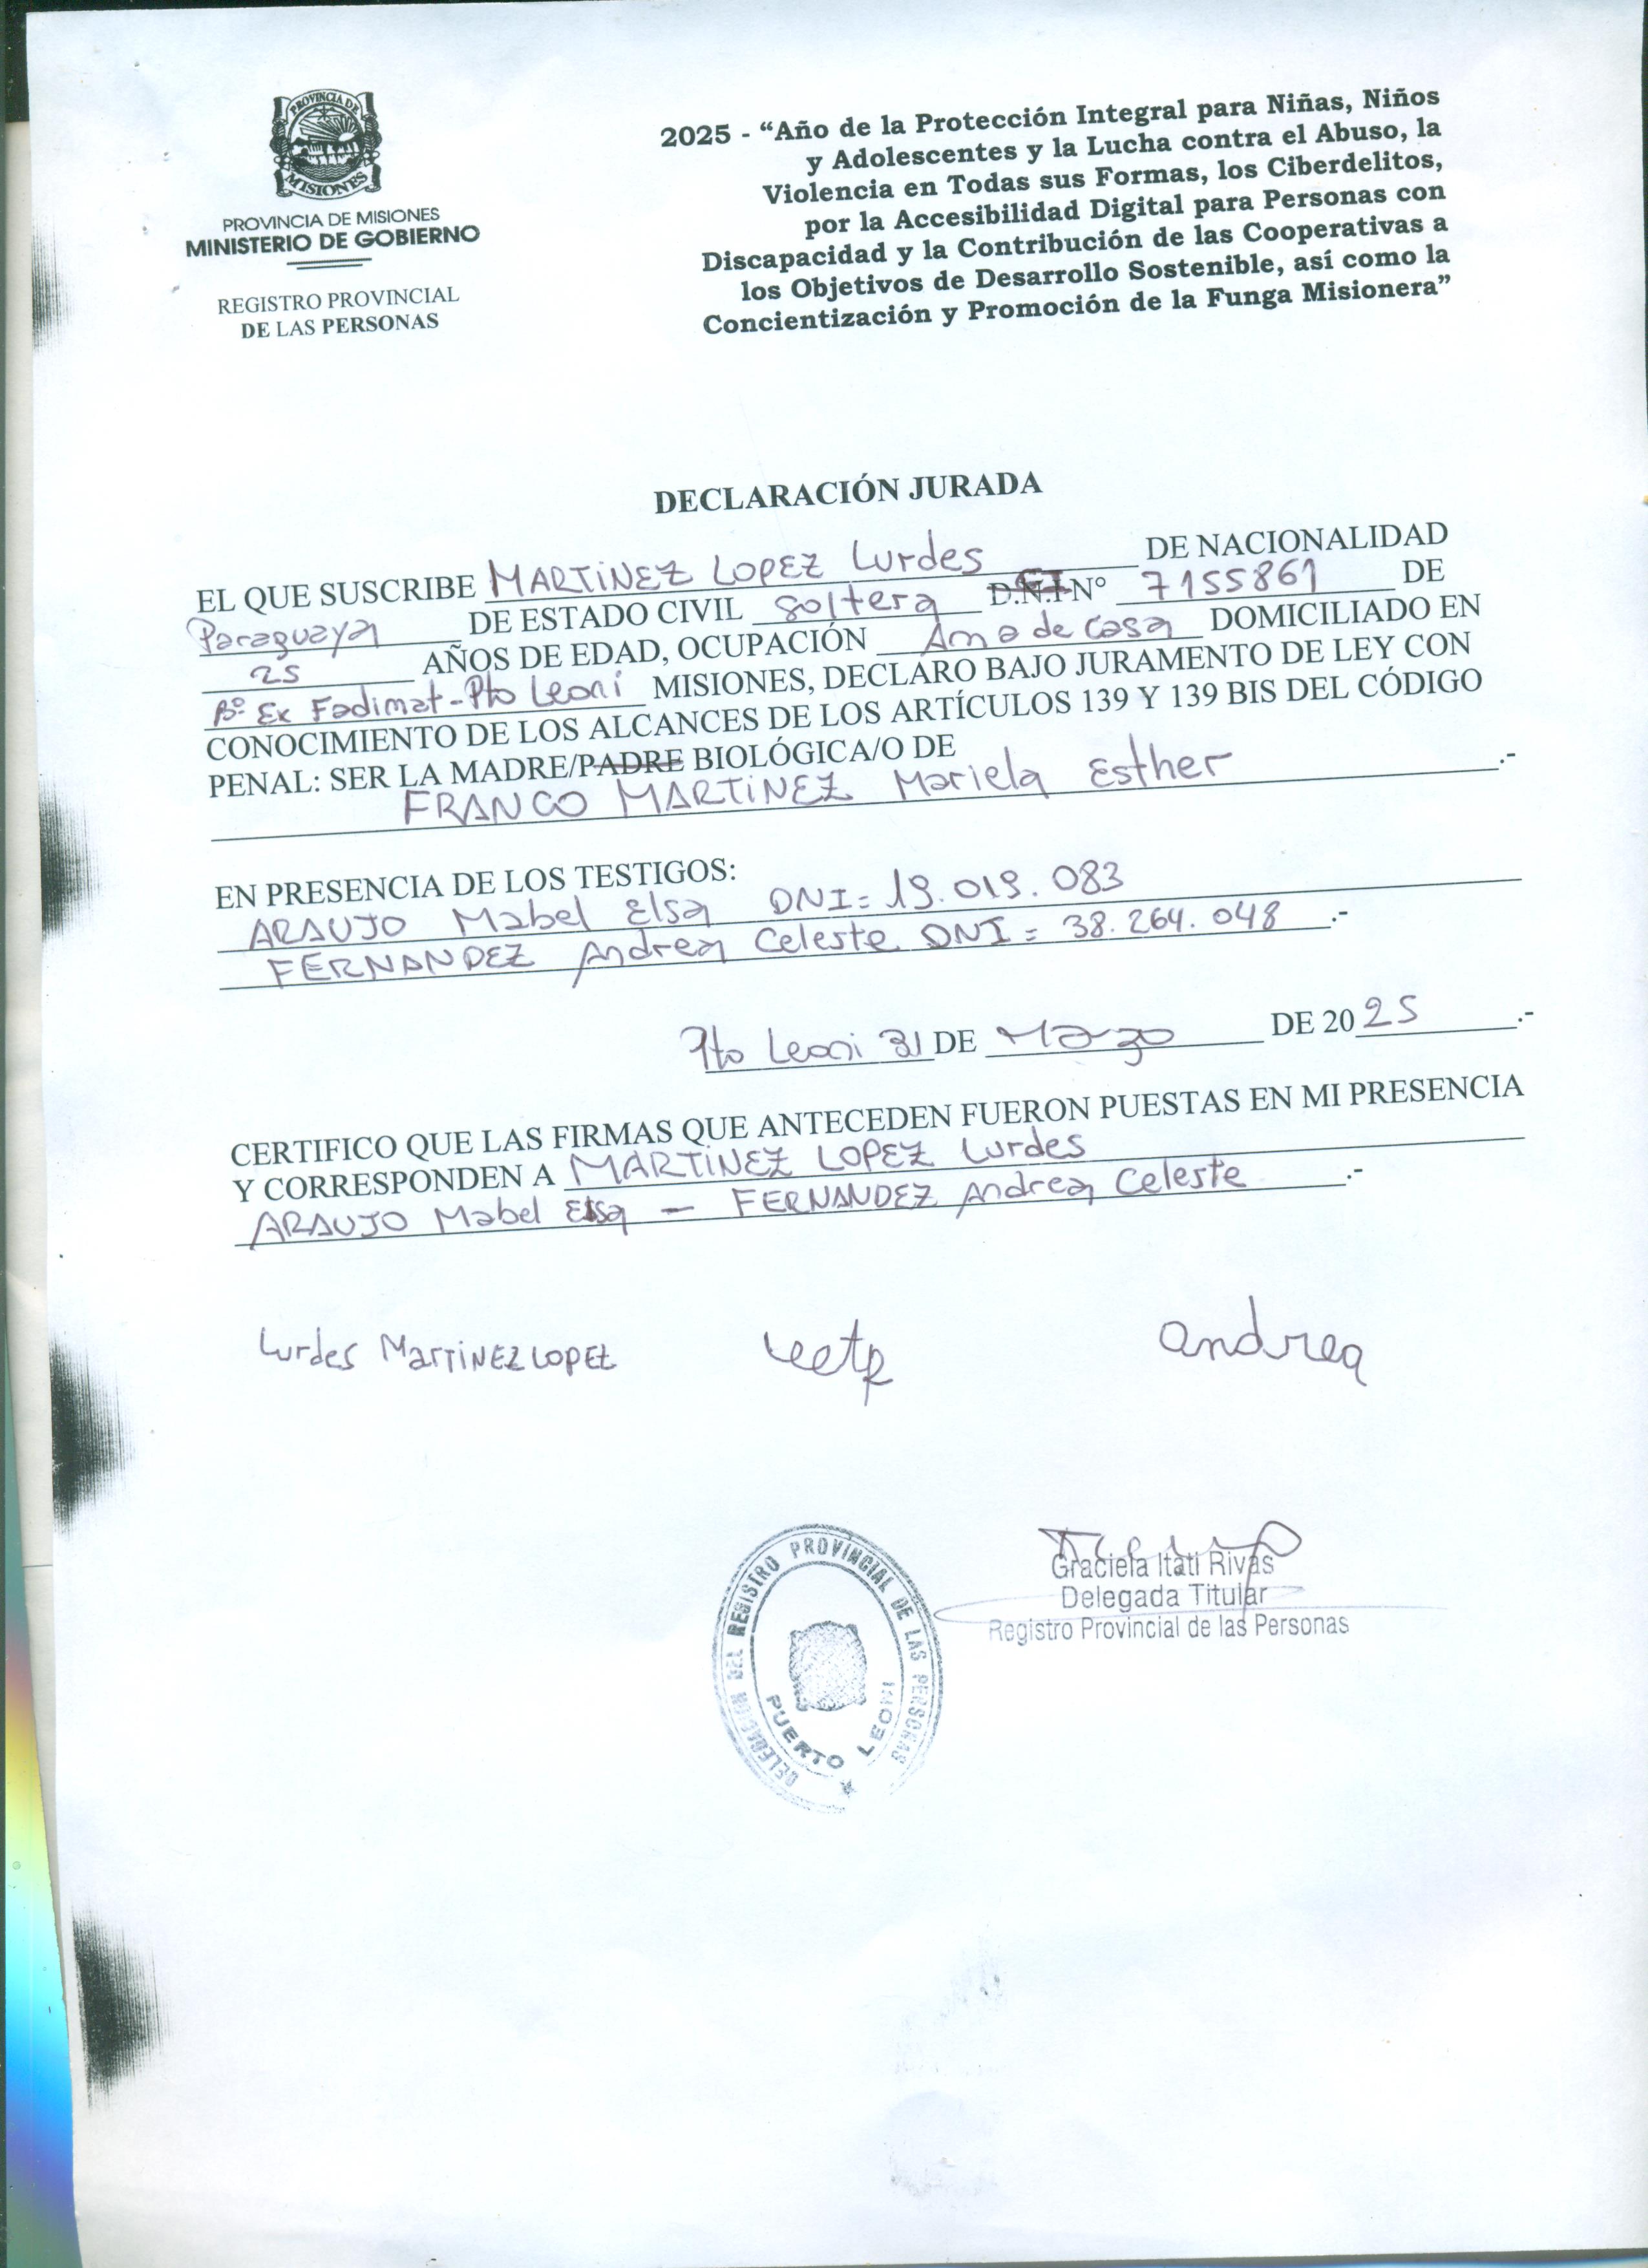 PROVINCIA DE
MISIONES
PROVINCIA DE MISIONES
MINISTERIO DE GOBIERNO
REGISTRO PROVINCIAL
DE LAS PERSONAS
2025 - “Año de la Protección Integral para Niñas, Niños
y Adolescentes y la Lucha contra el Abuso, la
Violencia en Todas sus Formas, los Ciberdelitos,
por la Accesibilidad Digital para Personas con
Discapacidad y la Contribución de las Cooperativas a
los Objetivos de Desarrollo Sostenible, así como la
Concientización y Promoción de la Funga Misionera”
DECLARACIÓN JURADA
EL QUE SUSCRIBE MARTiNEZ LOPEZ Lurdes DE NACIONALIDAD
Paraguaya DE ESTADO CIVIL Soltera D.N.I N° 7155861 DE
25 AÑOS DE EDAD, OCUPACIÓN Ama de Casa DOMICILIADO EN
B° Ex Fadimat - Pto Leoni MISIONES, DECLARO BAJO JURAMENTO DE LEY CON
CONOCIMIENTO DE LOS ALCANCES DE LOS ARTÍCULOS 139 Y 139 BIS DEL CÓDIGO
PENAL: SER LA MADRE/PADRE BIOLÓGICA/O DE
FRANCO MARTiNEZ Mariela Esther .-
EN PRESENCIA DE LOS TESTIGOS:
ARAUJO Mabel Elsa DNI = 19.019.083
FERNANDEZ Andrea Celeste DNI = 38.264.048 .-
Pto Leoni 31 DE Marzo DE 20 25 .-
CERTIFICO QUE LAS FIRMAS QUE ANTECEDEN FUERON PUESTAS EN MI PRESENCIA
Y CORRESPONDEN A MARTiNEZ LOPEZ Lurdes
ARAUJO Mabel Elsa — FERNANDEZ Andrea Celeste .-
Lurdes MarTiNEZ LOPEZ
andrea
Graciela Itati Rivas
Delegada Titular
Registro Provincial de las Personas
DELEGACION DEL REGISTRO PROVINCIAL DE LAS PERSONAS
PUERTO LEONI